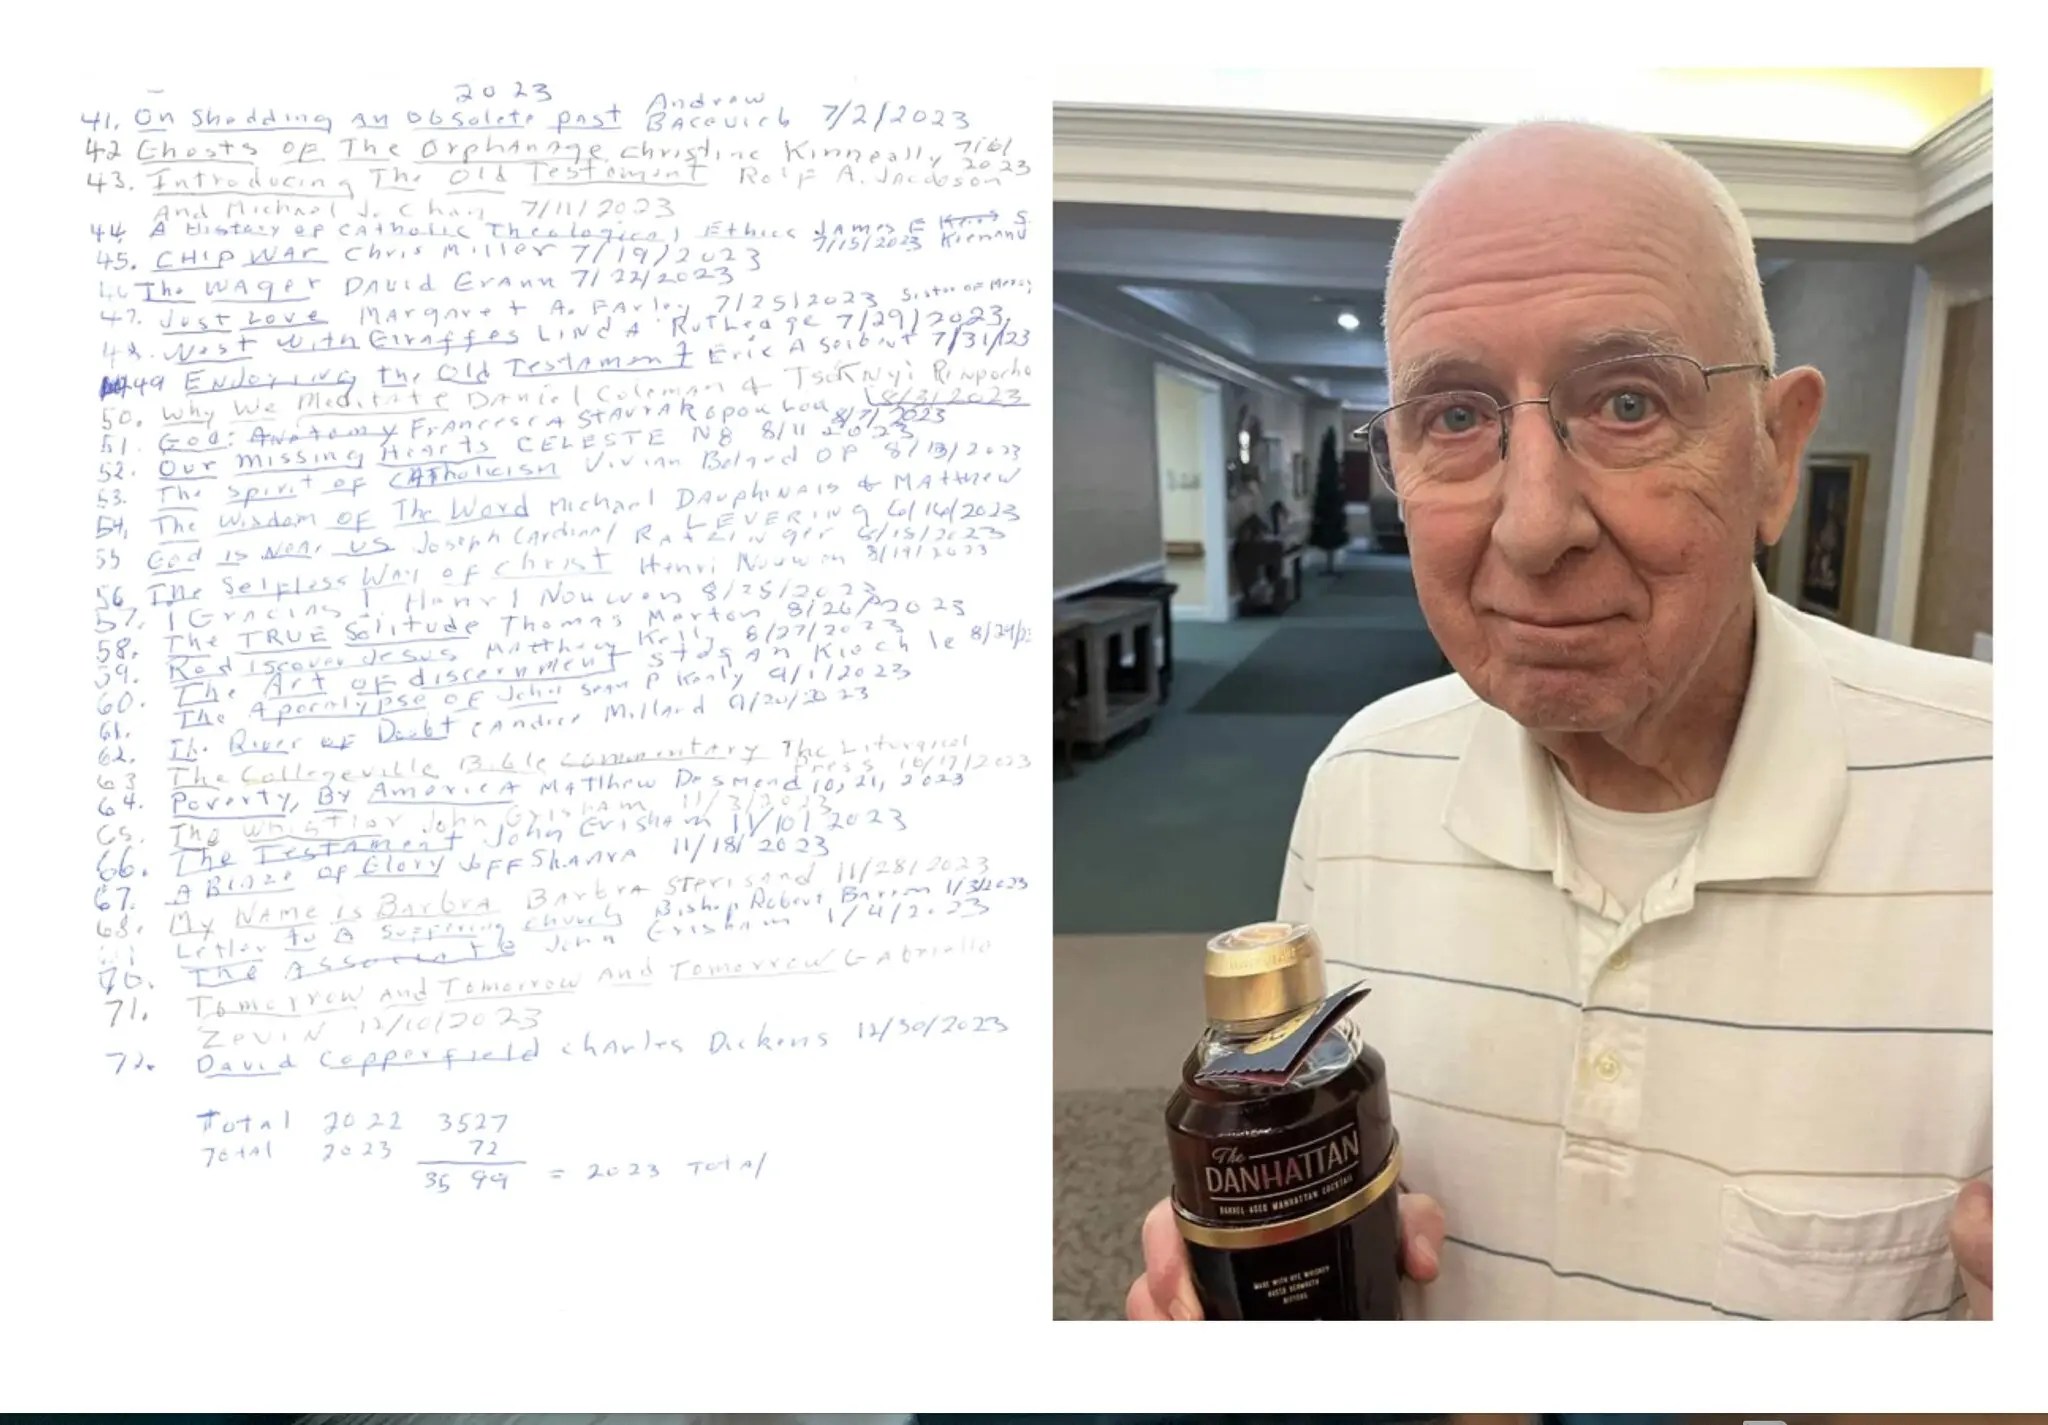 2023
41. On Shedding an Obsolete past Andrew Bacevich 7/2/2023
42 Ghosts of The Orphanage Christine Kinneally 7/6/ 2023
43. Introducing The Old Testament Rolf A. Jacobson
And Michael J. Chan 7/11/2023
44. A History of Catholic Theological Ethics James F S.
7/15/2023 Kienand
45. CHIP WAR Chris Miller 7/19/2023
46 The Wager David Grann 7/22/2023
47. Just Love Margaret A. Farley 7/25/2023 Sister of Mercy
48. West With Giraffes Linda Rutledge 7/29/2023
49 Enjoying the Old Testament Eric A Seibert 7/31/23
50. Why We Meditate Daniel Goleman & Tsoknyi Rinpoche
8/3/2023
51. God: Anatomy Francesca Stavrakopoulou 8/7/2023
52. Our missing Hearts CELESTE Ng 8/11 2023
53. The Spirit of Catholicism Vivian Boland OP 8/13/2023
54. The Wisdom of The Word Michael Dauphinais & Matthew
LEVERING
55 God is Near us Joseph Cardinal Ratzinger
56 The Selfless Way of Christ Henri Nouwen 8/19/2023
57. Henri Nouwen 8/25/2023
58. The TRUE Solitude Thomas Merton 8/26/2023
59. Rediscover Jesus Matthew Kelly 8/27/2023
60. The Art of discernment Stefan Kiechle 8/29/23
61. The Apocalypse of John Sean P Kealy 9/1/2023
62. The River of Doubt Candice Millard 9/20/2023
63 The Collegeville Bible Commentary The Liturgical
Press 10/17/2023
64. Poverty, By America Matthew Desmond 10, 21, 2023
65. The Whistler John Grisham 11/3/2023
66. The Testament John Grisham 11/10/2023
67. A Blaze of Glory Jeff Shaara 11/18/2023
68. My Name is Barbra Barbra Streisand 11/28/2023
Letter to A Suffering Church Bishop Robert Barron 1/3/2023
70. The Associate John Grisham 1/4/2023
71. Tomorrow And Tomorrow And Tomorrow Gabrielle
Zevin 12/10/2023
72. David Copperfield Charles Dickens 12/30/2023
Total 2022 3527
Total 2023 72
3599 = 2023 Total
The
DANHATTAN
BARREL-AGED MANHATTAN COCKTAIL
MADE WITH RYE WHISKEY
VERMOUTH
BITTERS